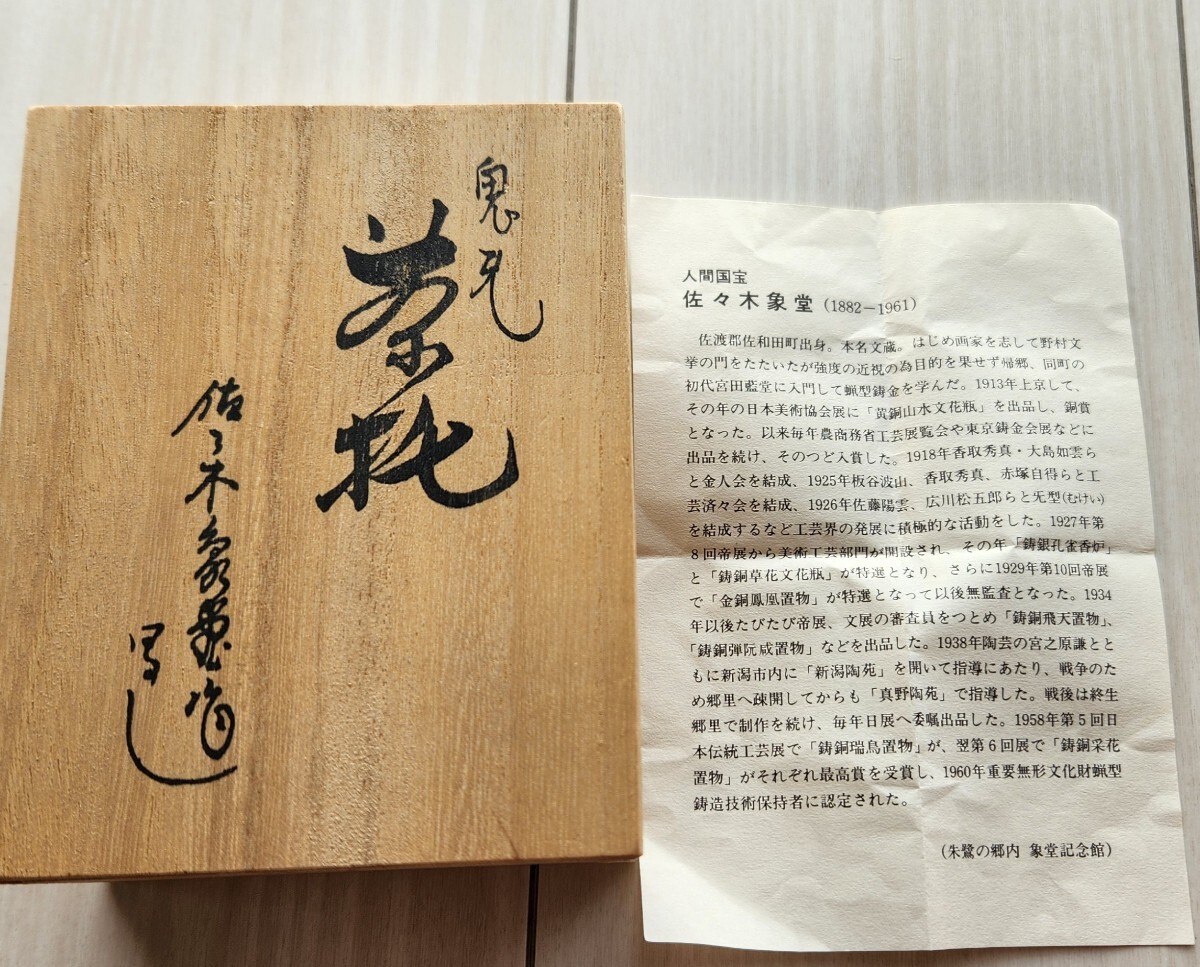 鬼瓦
茶托
佐々木象堂作
写し
人間国宝
佐々木象堂(1882−1961)
佐渡郡佐和田町出身。本名文蔵。はじめ画家を志して野村文
挙の門をたたいたが強度の近視の為目的を果せず帰郷、同町の
初代宮田藍堂に入門して蝋型鋳金を学んだ。1913年上京して、
その年の日本美術協会展に「黄銅山水文花瓶」を出品し、銅賞
となった。以来毎年農商務省工芸展覧会や東京鋳金会展などに
出品を続け、そのつど入賞した。1918年香取秀真・大島如雲ら
と金人会を結成、1925年板谷波山、香取秀真、赤塚自得らと工
芸済々会を結成、1926年佐藤陽雲、広川松五郎らと旡型(むけい)
を結成するなど工芸界の発展に積極的な活動をした。1927年第
8回帝展から美術工芸部門が開設され、その年「鋳銀孔雀香炉」
と「鋳銅草花文花瓶」が特選となり、さらに1929年第10回帝展
で「金銅鳳凰置物」が特選となって以後無監査となった。1934
年以後たびたび帝展、文展の審査員をつとめ「鋳銅飛天置物」、
「鋳銅弾阮咸置物」などを出品した。1938年陶芸の宮之原謙とと
もに新潟市内に「新潟陶苑」を開いて指導にあたり、戦争のた
め郷里へ疎開してからも「真野陶苑」で指導した。戦後は終生
郷里で制作を続け、毎年日展へ委嘱出品した。1958年第5回日
本伝統工芸展で「鋳銅瑞鳥置物」が、翌第6回展で「鋳銅采花
置物」がそれぞれ最高賞を受賞し、1960年重要無形文化財蝋型
鋳造技術保持者に認定された。
(朱鷺の郷内 象堂記念館)